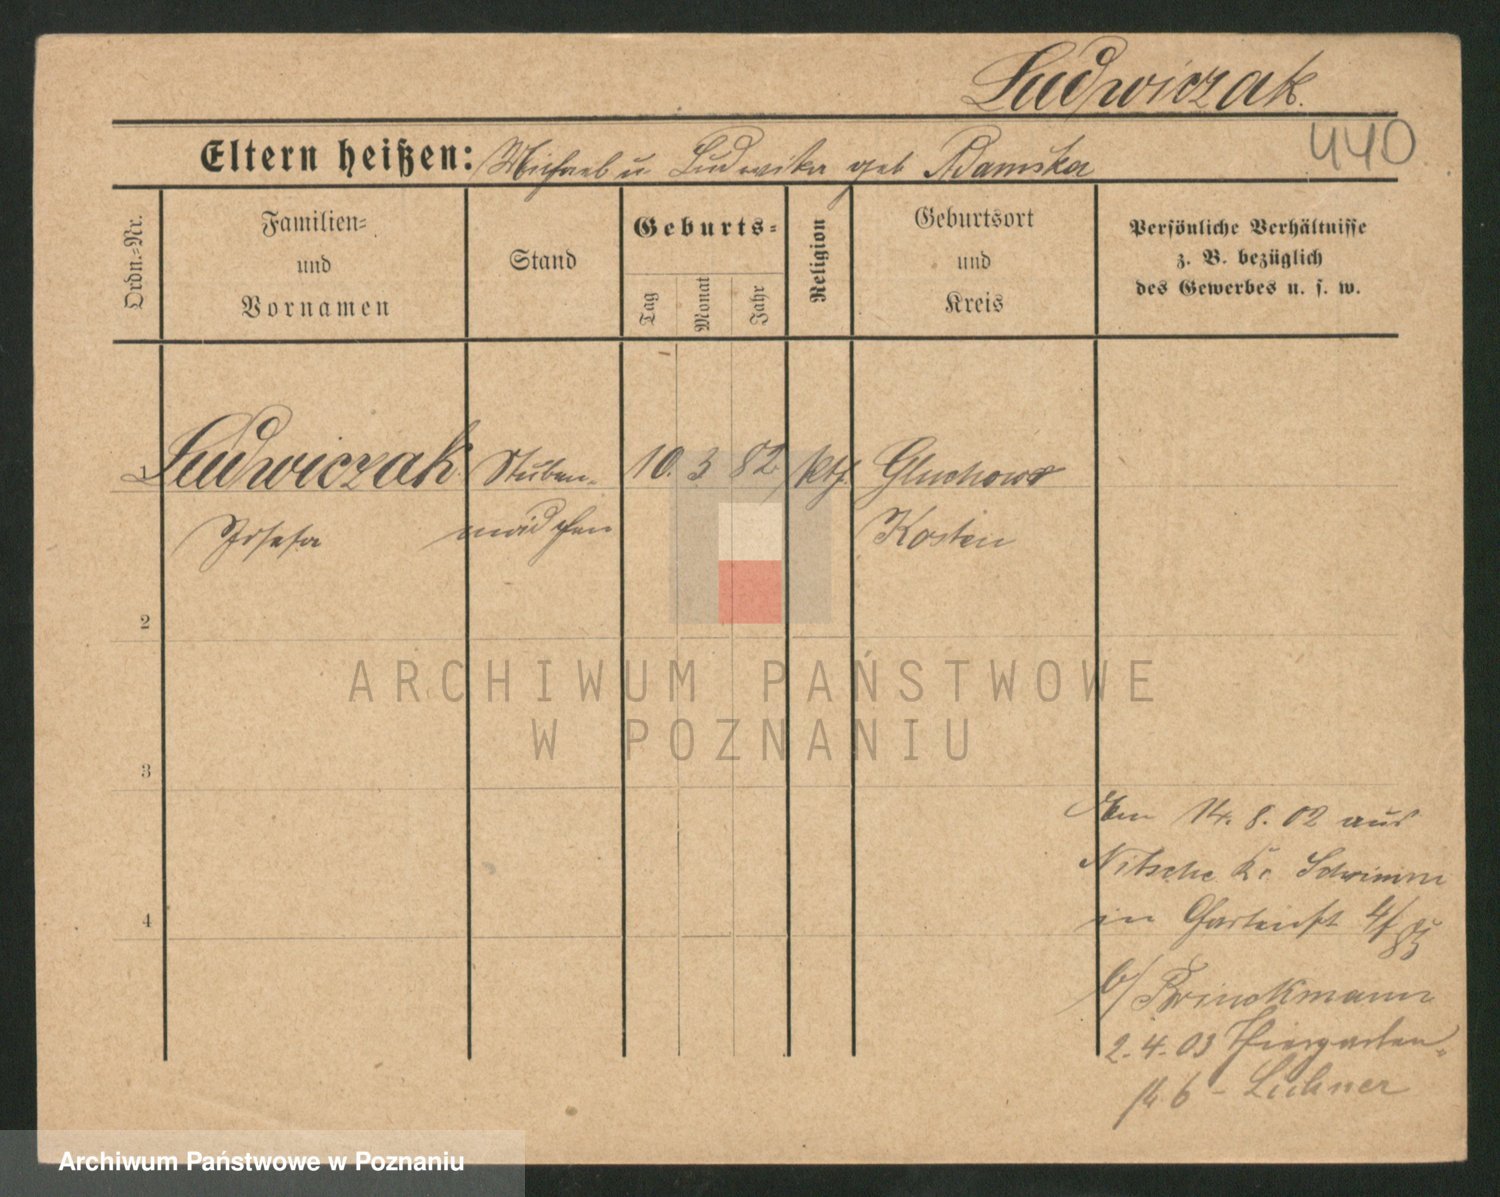 Ludwiczak.
440
Eltern heißen: Michael u Ludwika geb Adamska
Ordn.-Nr.
Familien-
und
Vornamen
Stand
Geburts-
Tag
Monat
Jahr
Religion
Geburtsort
und
Kreis
Persönliche Verhältnisse
z. B. bezüglich
des Gewerbes u. s. w.
1 Ludwiczak Stuben- 10. 3 82 kth. Gluchowo
Josefa mädchen Kosten
2
3
4
Am 14. 8. 02 aus
Nitsche Kr. Schrimm
in Gartenst 4/
b/ Brinckmann
2. 4. 03 Thiergarten-
str. 6 - Lechner
ARCHIWUM PAŃSTWOWE
W POZNANIU
Archiwum Państwowe w Poznaniu